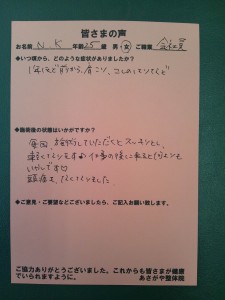 皆さまの声
お名前 N.K 年齢 25 歳 男・女 ご職業 会社員
◆いつ頃から、どのような症状がありましたか？
1年ほど前から、肩こり、
◆施術後の状態はいかがですか？
毎回 施術していただくとスーッとし、
軽くなります
いいです
頭痛も、なくなりました
◆ご意見・ご要望などございましたら、ご記入お願い致します。
ご協力ありがとうございました。これからも皆さまが健康
でいられますように。 あさがや整体院